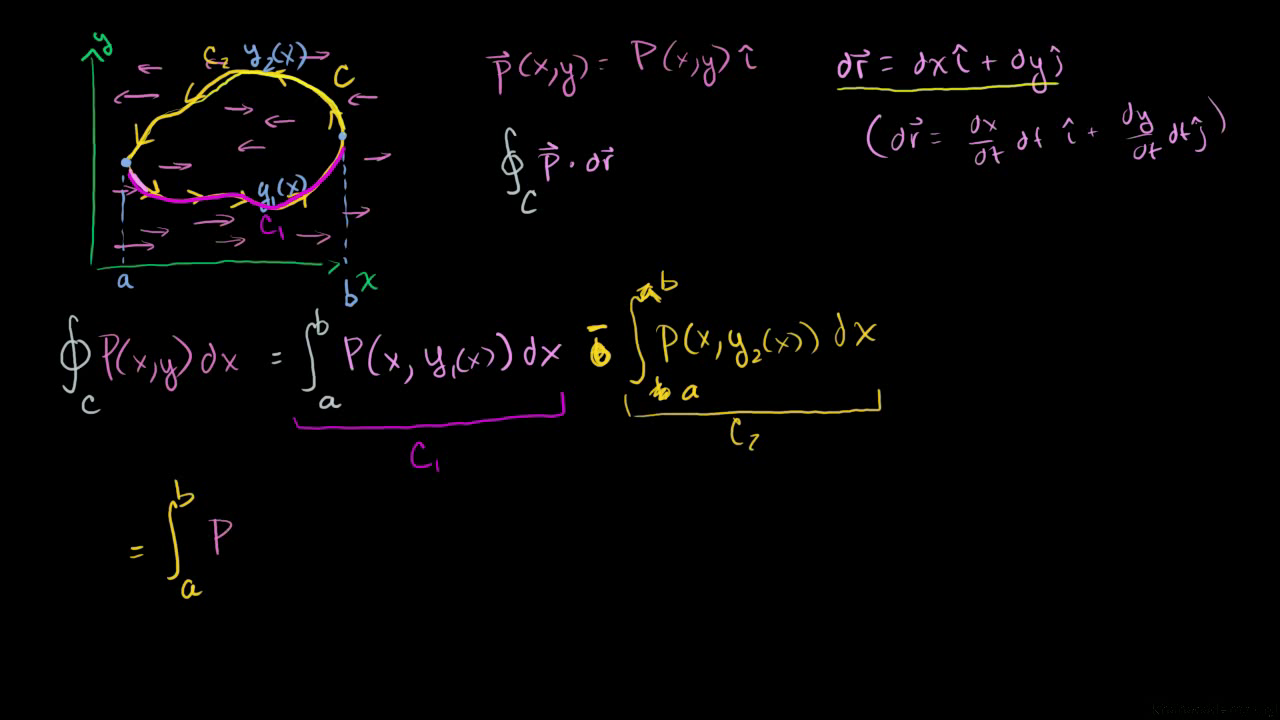 y
C₂ y₂(x)
C
y₁(x)
C₁
a
b x
P⃗(x,y) = P(x,y) î
dr⃗ = dx î + dy ĵ
(dr⃗ = dx/dt dt î + dy/dt dt ĵ)
∮_C P⃗ · dr⃗
∮_C P(x,y) dx = ∫_a^b P(x, y₁(x)) dx - ∫_a^b P(x, y₂(x)) dx
C₁
C₂
= ∫_a^b P